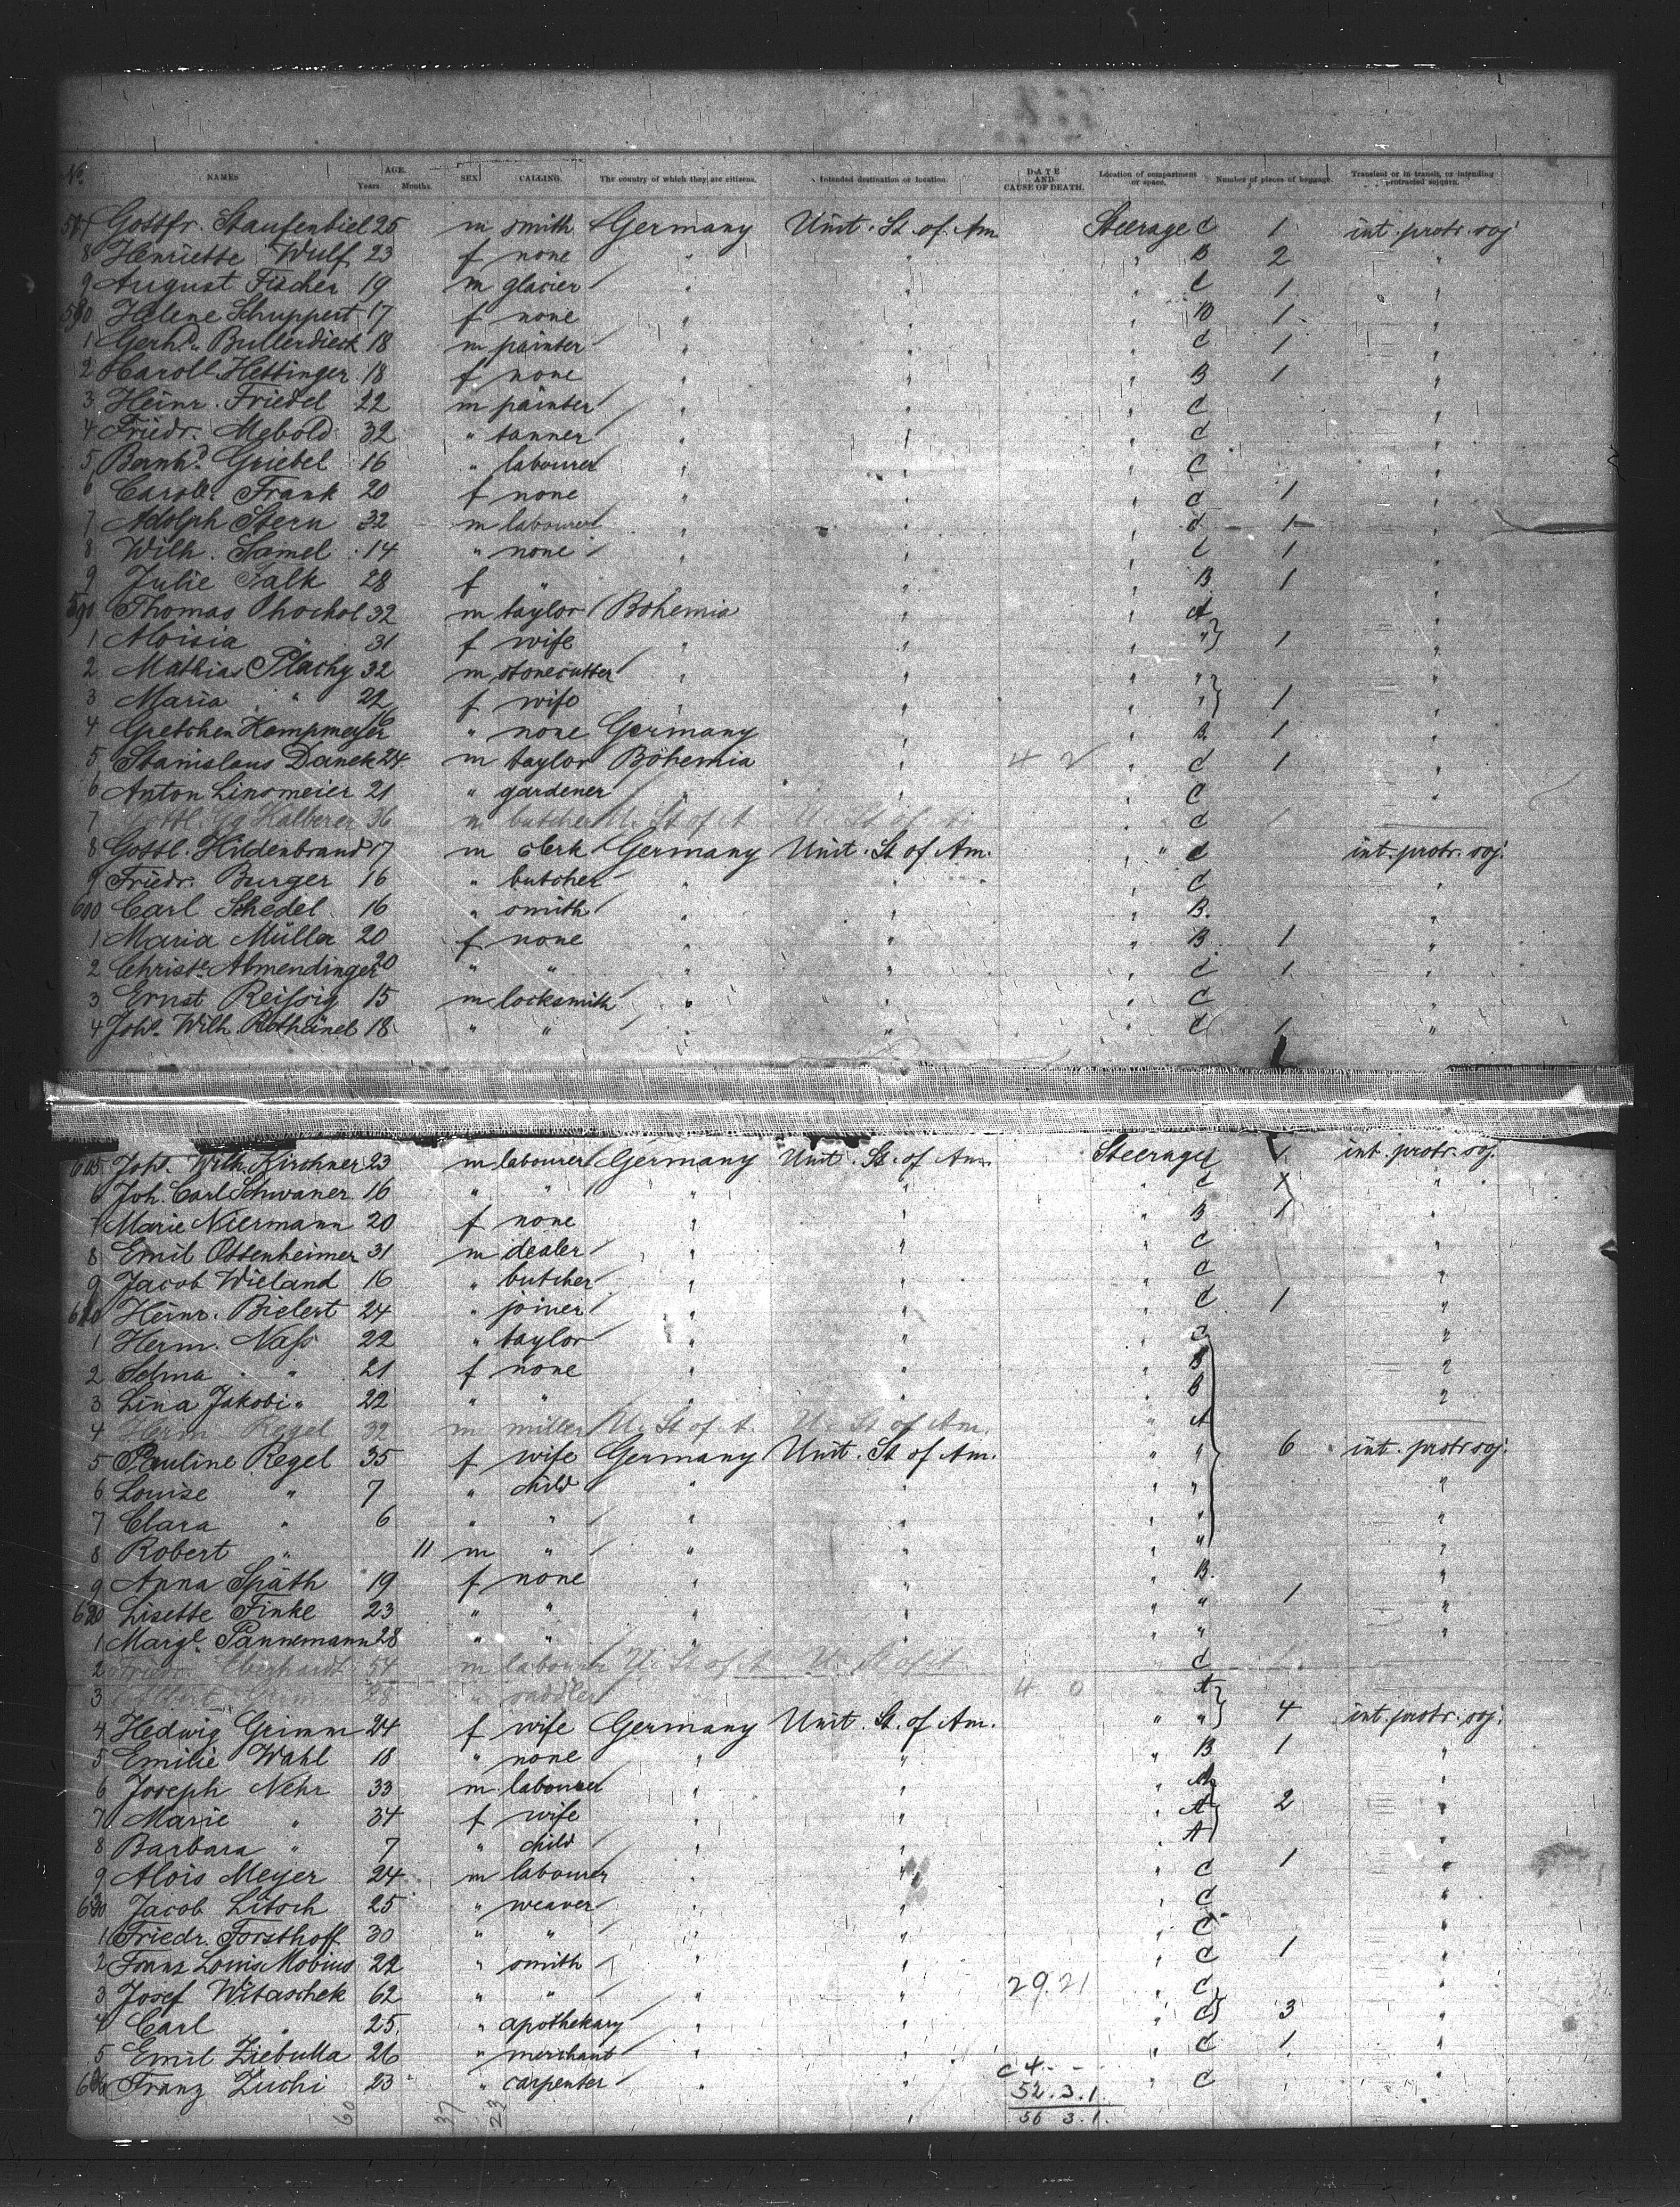 No. NAMES AGE. Years. Months. SEX CALLING. The country of which they are citizens. Intended destination or location. DATE AND CAUSE OF DEATH. Location of compartment or space. Number of pieces of baggage. Transient or in transit, or intending protracted sojourn.
577 Gottfr. Staufenbiel 25 m smith Germany Unit. St. of. Am Steerage C 1 int. protr. soj
8 Henriette Wulf 23 f none " " " B 2 "
9 August Fischer 19 m glacier " " " C 1 "
580 Helene Schuppert 17 f none " " " B 1 "
1 Gerhd. Bullerdieck 18 m painter " " " C 1 "
2 Karoll. Hettinger 18 f none " " " B 1 "
3 Heinr. Friedel 22 m painter " " " C "
4 Friedr. Mebold 32 " tanner " " " C "
5 Bernhd. Griebel 16 " labourer " " " C "
6 Carole. Frank 20 f none " " " C 1 "
7 Adolph Stern 32 m labourer " " " C 1 "
8 Wilh. Samel 14 " none " " " C 1 "
9 Julie Falk 28 f " " " " B 1 "
590 Thomas Chochol 32 m taylor Bohemia " " A "
1 Aloisia " 31 f wife " " " " 1 "
2 Mathias Plachy 32 m stonecutter " " " " "
3 Maria " 22 f wife " " " " 1 "
4 Gretchen Kampmeyer 16 " none Germany " " B. 1 "
5 Stanislaus Danek 24 m taylor Böhemia " 4 2 " C 1 "
6 Anton Linsmeier 21 " gardener " " " C "
7 Gottl. Gg Kalberer 36 m butcher U. St of A U. St of A. " C 1
8 Gottl. Hildenbrand 17 m clerk Germany Unit. St of Am. " C int. protr. soj.
9 Friedr. Burger 16 " butcher " " " C "
600 Carl Schedel 16 " smith " " " B. "
1 Maria Müller 20 f none " " " B 1 "
2 Christe. Abmendinger 20 " " " " " C 1 "
3 Ernst Reißig 15 m locksmith " " " C "
4 Johs. Wilh. Rothänel 18 " " " " " C 1 "
605 Johs. Wilh. Kirchner 23 m labourer Germany Unit. St. of Am. Steerage C 1 int. protr. soj.
6 Joh. Carl Schwaner 16 " " " " " C X "
7 Marie Niermann 20 f none " " " B 1 "
8 Emil Ottenheimer 31 m dealer " " " C "
9 Jacob Wieland 16 " butcher " " " C "
610 Heinr. Bielert 24 " joiner " " " C 1 "
1 Herm. Naß 22 " taylor " " " C "
2 Selma " 21 f none " " " B "
3 Lina Jakobi " 22 " " " " " B "
4 Herm Regel 32 m miller U. St of A. U. St of Am. " A
5 Pauline Regel 35 f wife Germany Unit. St of Am. " " 6 int. protr soj.
6 Louise " 7 " child " " " " "
7 Clara " 6 " " " " " " "
8 Robert " 11 m " " " " " "
9 Anna Späth 19 f none " " " B. "
620 Lisette Finke 23 " " " " " " 1 "
1 Margl. Pannemann 28 " " " " " " "
2 Friedr. Eberhardt 54 m labourer U. St of A U. St of A C 1
3 Albert Grimm 28 " saddler 4 0 " A
4 Hedwig Grimm 24 f wife Germany Unit. St. of Am. " " 4 int. protr. soj.
5 Emilie Wahl 18 " none " " " B 1 "
6 Joseph Nehr 33 m labourer " " " A "
7 Marie " 34 f wife " " " A 2 "
8 Barbara " 7 " child " " " A "
9 Alois Meyer 24 m labourer " " " C 1 "
630 Jacob Litsch 25 " weaver " " " C "
1 Friedr. Forsthoff 30 " " " " " C "
2 Franz Louis Mobius 22 " smith " " " C 1 "
3 Josef Witaschek 62 " " " " 29.21 " C "
4 Carl " 25 " apothekary " " " C 3 "
5 Emil Ziebulla 26 " merchant " " " C 1 "
636 Franz Zuchi 23 " carpenter " " " C "
C 4 - -
52. 3. 1.
56 3. 1.
60 37 23